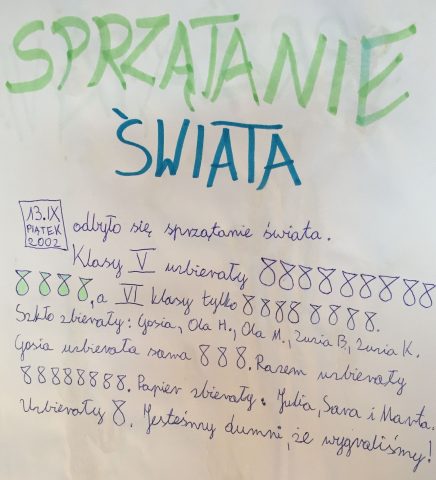 SPRZĄTANIE
ŚWIATA
13.IX
PIĄTEK
2002
odbyło się sprzątanie świata.
Klasy V uzbierały
, a VI klasy tylko
Szkło zbierały: Gosia, Ola H., Ola M., Zuzia B, Zuzia K.
Gosia uzbierała sama . Razem uzbierały
. Papier zbierały: Julia, Sara i Marta.
Uzbierały . Jesteśmy dumni, że wygraliśmy!